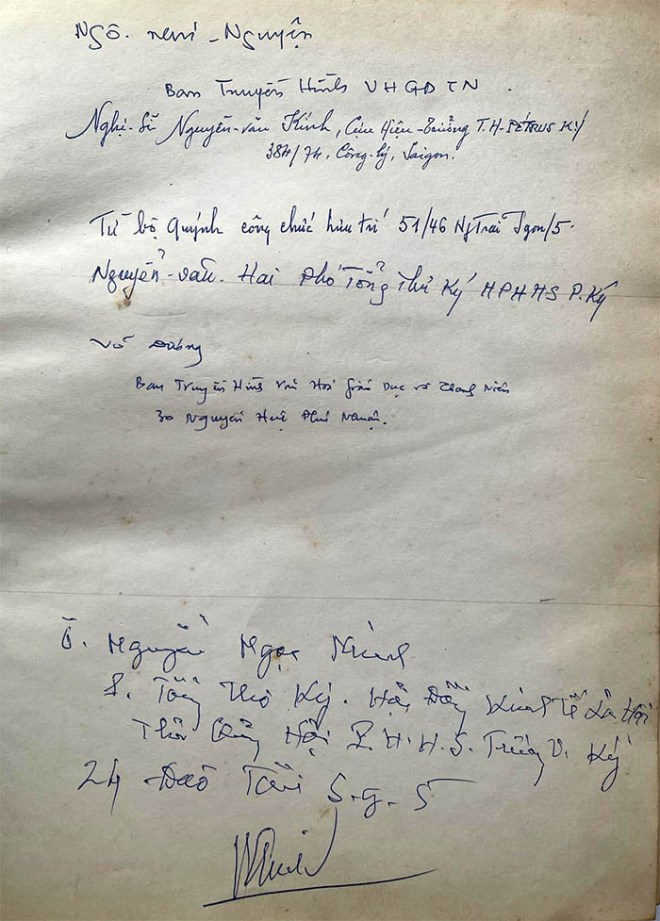 Ngô . - Nguyện
Ban Truyền Hình VHGDTN .
Nghị-Sĩ Nguyễn-văn Kính, Cựu Hiệu-Trưởng T.H-PÉTRUS Ký
384/74, Công-lý, Saigon.
Từ bộ Quýnh công chức hưu trí 51/46 NgTrai Sgon/5.
Nguyễn-văn-Hai Phó Tổng Thư Ký HPHHS P.Ký
Võ
Ban Truyền Hình Văn Hoá Giáo Dục và Thanh Niên
30 Nguyễn Huệ Phú Nhuận.
Ô. Nguyễn Ngọc
Tổng Thơ Ký . Hội Đồng Kinh Tế Xã Hội
Thủ Hội P.H.H.S. Trương V. Ký
24 Tấn S.g.5